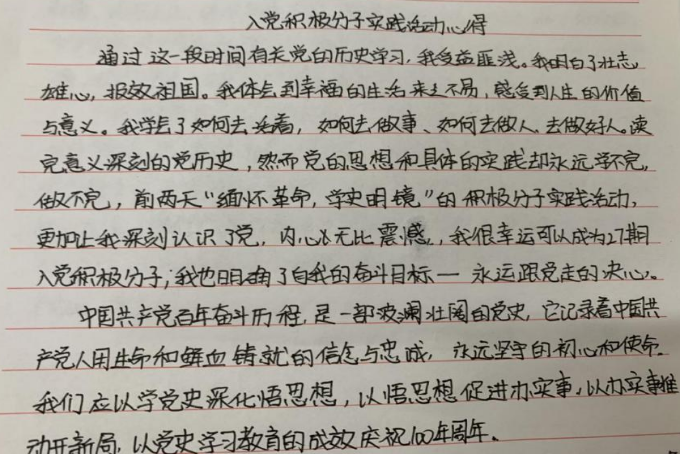 入党积极分子实践活动心得
通过这一段时间有关党的历史学习，我受益匪浅。我明白了壮志
雄心，报效祖国。我体会到幸福的生活来之不易，感受到人生的价值
与意义。我学会了如何去活着，如何去做事、如何去做人，去做好人。读
完意义深刻的党历史，然而党的思想和具体的实践却永远学不完，
做不完，前两天“缅怀革命，学史明镜”的积极分子实践活动，
更加让我深刻认识了党，内心无比震憾，我很幸运可以成为27期
入党积极分子；我也明确了自我的奋斗目标一永远跟党走的决心。
中国共产党百年奋斗历程，是一部波澜壮阔的党史，它记录着中国共
产党人用生命和鲜血铸就的信念与忠诚，永远坚守的初心和使命。
我们应以学党史深化悟思想，以悟思想促进办实事，以办实事推
动开新局，以党史学习教育的成效庆祝100年周年。